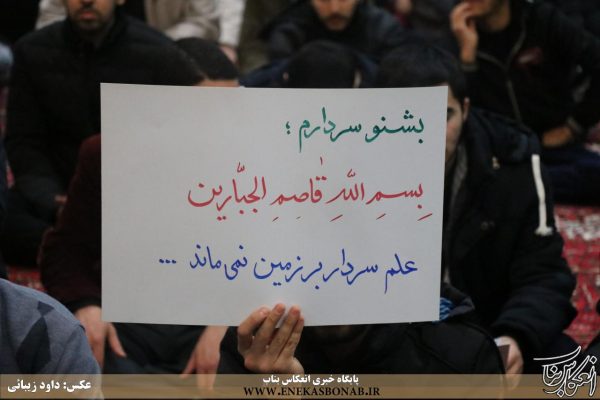 بشنو سردارم ؛
بِسمِ اللهِ قاٰصِمِ الجبّارین
علم سردار بر زمین نمی ماند ...
عکس: داود زیبائی
پایگاه خبری انعکاس بناب
WWW.ENEKASBONAB.IR
انعکاس بناب